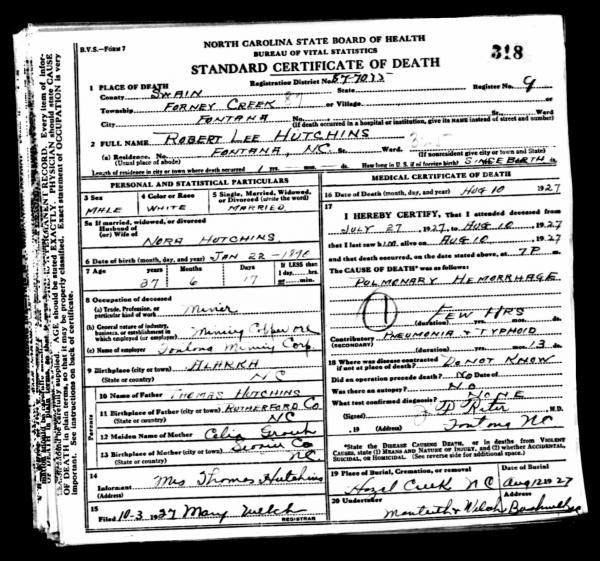 B.V.S.—FORM 7
NORTH CAROLINA STATE BOARD OF HEALTH
BUREAU OF VITAL STATISTICS
STANDARD CERTIFICATE OF DEATH
318
1 PLACE OF DEATH
Registration District No.
Register No. 9
County SWAIN State
Township FORNEY CREEK or Village
City FONTANA No. St. Ward
(If death occurred in a hospital or institution, give its NAME instead of street and number)
2 FULL NAME ROBERT LEE HUTCHINS
(a) Residence. No. FONTANA, NC. St. Ward.
(Usual place of abode) (If nonresident give city or town and State)
Length of residence in city or town where death occurred 1 yrs. mos. ds. How long in U. S. if of foreign birth? SINCE BIRTH ds.
PERSONAL AND STATISTICAL PARTICULARS
3 Sex
MALE
4 Color or Race
WHITE
5 Single, Married, Widowed, or Divorced (write the word)
MARRIED
5a If married, widowed, or divorced
Husband of
(or) Wife of
NORA HUTCHINS
6 Date of birth (month, day, and year) JAN 22 - 1890
7 Age years Months Days
37 6 17
If LESS than
1 day, hrs.
or min.
8 Occupation of deceased
(a) Trade, Profession, or
particular kind of work Miner
(b) General nature of industry,
business, or establishment in
which employed (or employer) Mining Copper ore
(c) Name of employer Fontana Mining Corp.
9 Birthplace (city or town) ALARKA
(State or country) NC
Parents
10 Name of Father THOMAS HUTCHINS
11 Birthplace of Father (city or town) RUTHERFORD CO
(State or country) NC
12 Maiden Name of Mother Celia
13 Birthplace of Mother (city or town) Co
(State or country) NC
14
Informant Mrs Thomas Hutchins
(Address)
15
Filed 10-3 1927 Mary Welch
REGISTRAR
MEDICAL CERTIFICATE OF DEATH
16 Date of Death (month, day, and year) AUG 10 1927
17
I HEREBY CERTIFY, That I attended deceased from
JULY 27 1927, to AUG 10, 1927
that I last saw him alive on AUG 10, 1927
and that death occurred, on the date stated above, at 7P m.
The CAUSE OF DEATH* was as follows:
PULMONARY HEMORRHAGE
1
FEW HRS
(duration) yrs. mos. ds.
Contributory PNEUMONIA & TYPHOID
(SECONDARY)
(duration) yrs. mos. 13 ds.
18 Where was disease contracted
if not at place of death? DO NOT KNOW
Did an operation precede death? NO Date of
Was there an autopsy? NO
What test confirmed diagnosis? NONE
(Signed) M.D.
, 19 (Address) Fontana NC
*State the DISEASE CAUSING DEATH, or in deaths from VIOLENT
CAUSES, state (1) MEANS AND NATURE OF INJURY, and (2) whether ACCIDENTAL,
SUICIDAL, or HOMICIDAL. (See reverse side for additional space.)
19 Place of Burial, Cremation, or removal
Hazel Creek NC
Date of Burial
Aug 12 1927
20 Undertaker
Monteith & Welch
Address